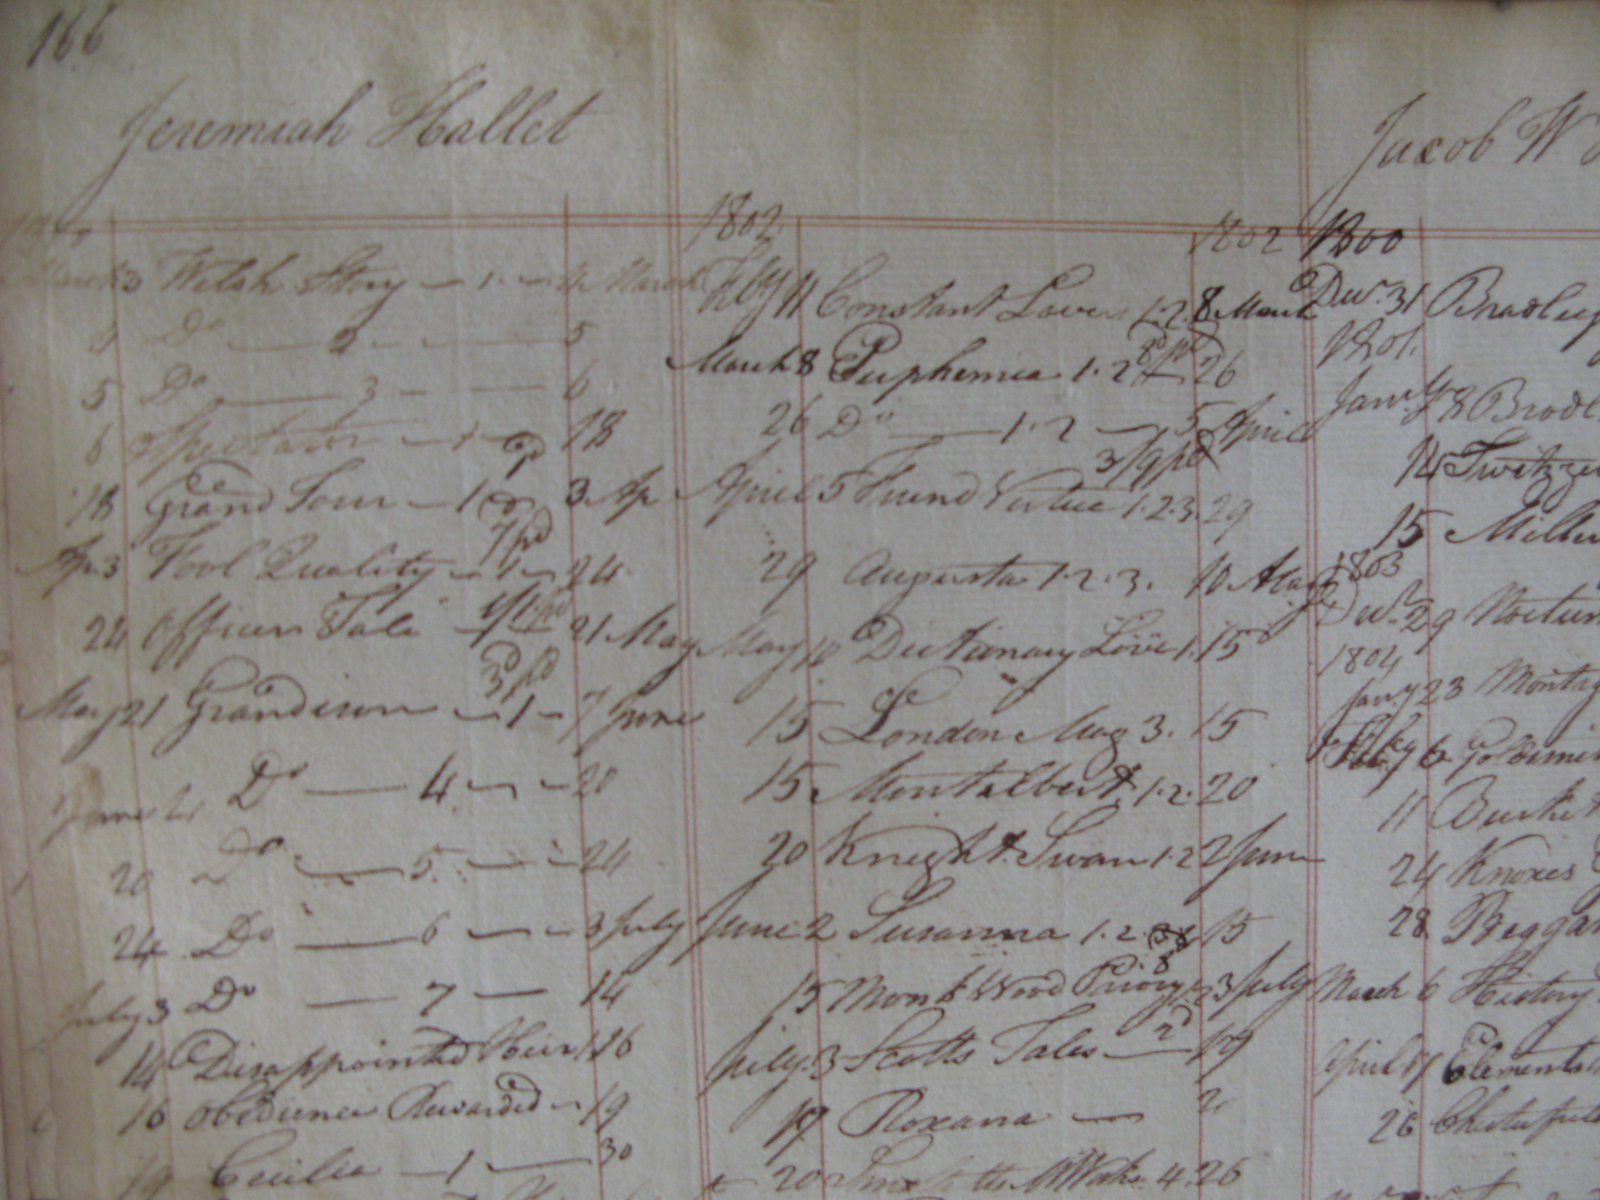 166
Jeremiah Hallet
March 3 Welsh Story — 1 — 4 March
4 Do — 2 — 5
5 Do — 3 — 6
6 Spectator — 1 — 18
18 Grand Tour — 1 — 3 Ap
7 pd
Ap. 3 Fool Quality — 1 — 24
24 Officers Tale — 21 May
3d pd
May 21 Grandison — 1 — 7 June
June Do — 4 — 20
20 Do — 5 — 24
24 Do — 6 — 3 July
July 3 Do — 7 — 14
14 Disappointed Heir 1 16
16 Obedience Rewarded — 19
19 Cecilia — 1 — 30
1802
1802
Feby 11 Constant Lover 1.2. 8 March
March 8 Euphemia 1.2 26
26 Do — 1.2 — 5 April
3/9 pd
April 5 Friend Vertue 1.2.3. 29
29 Augusta 1.2.3. 10 May
May 10 Dictionary Love 1. 15
15 London Mag 3. 15
15 Montalbert 1.2. 20
20 Knight Swan 1.2 2 June
June 2 Susanna 1.2. 15
15 Monk Wood Priory 1.2 3 July
July 3 Scotts Tales — 17
17 Roxana — 20
20 4. 26
Jacob W
1800
Decr. 31 Bradley
1801.
Jany 8 Bradl
14 Switzer
15 Miller
1803
Decr. 29 Noctur
1804
Jany 23 Montag
Feby 6
11 Burke
24 Knoxes
28 Beggar
March 6 History
April 17 Elements
26 Chesterfield